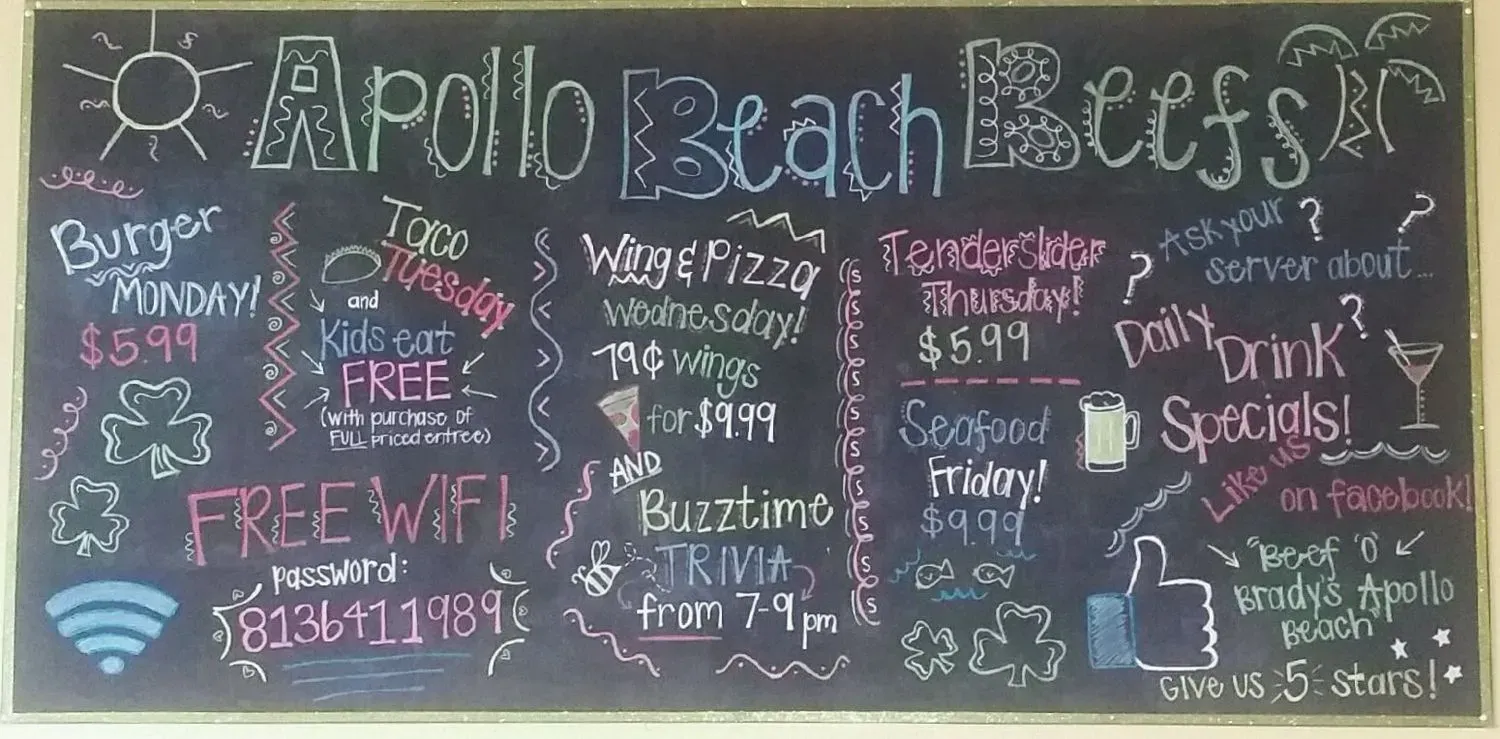 Apollo Beach Beefs
Burger
MONDAY!
$5.99
Taco
Tuesday
and
Kids eat
FREE
(with purchase of
FULL priced entree)
FREE WIFI
password:
8136411989
Wing & Pizza
Wednesday!
79¢ wings
for $9.99
AND
Buzztime
TRIVIA
from 7-9pm
Tender Slider
Thursday!
$5.99
Seafood
Friday!
$9.99
Ask your ? ?
? server about...
Daily ?
Drink
Specials!
Like us
on facebook!
"Beef 'O'
Brady's Apollo
Beach"
GIVE US 5 stars!